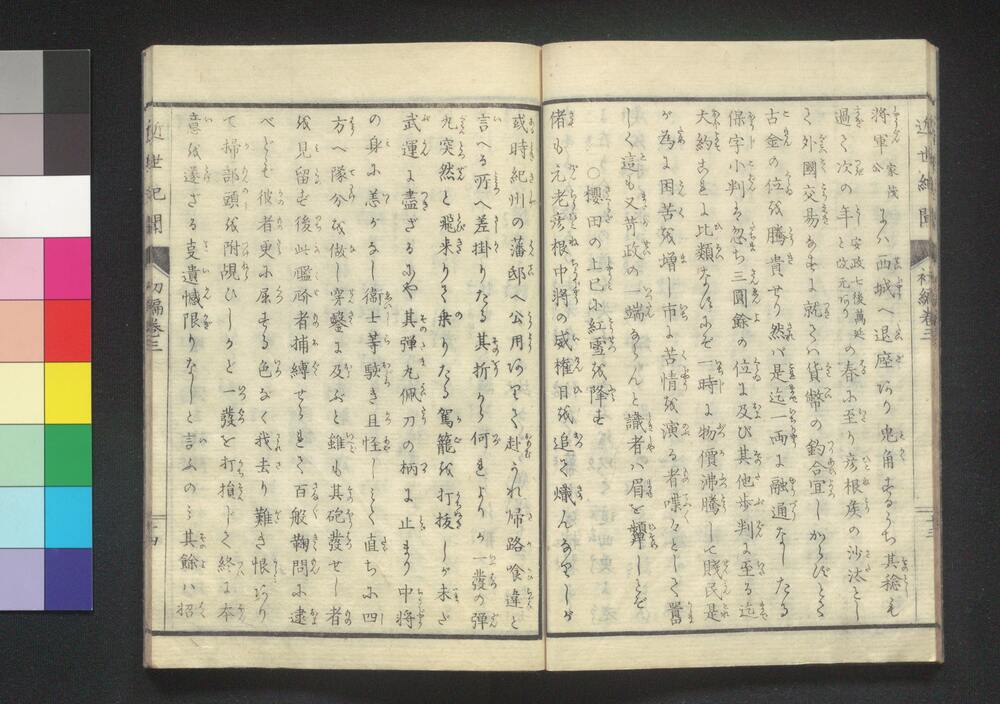 近世紀聞 初編巻三 十三
将軍公家茂よハ西城へ退座ありて兎角するうち其稔も
過て次の年安政七後萬延と改元ありの春に至り彦根侯の沙汰とし
て外國交易あるに就てハ貨幣の釣合宜しからずとて
古金の位を騰貴せり然バ是迄一両に融通なしたる
保字小判ハ忽ち三圓餘の位に及び其他歩判に至る迄
大約これに比類なれバにや一時に物價沸騰して賎民是
が為に困苦を増し市に苦情を演る者喋々として囂
しく這も又苛政の一端ならんと識者ハ眉を顰しとぞ
○櫻田の上巳に紅雪を降す
偖も元老彦根中将の威権日を追て熾んなりしが
或時紀州の藩邸へ公用ありて赴かれ帰路喰違と
言へる所へ差掛りたる其折から何れよりか一發の弾
丸突然と飛来りて乗りたる駕籠を打抜しが未だ
武運に盡ざるにや其弾丸佩刀の柄に止まり中将
の身に恙がなし衛士等駭き且怪しみて直ちに四
方へ隊分を做し穿鑿に及ぶと雖も其砲發せし者
を見留ず後此濫砲者捕縛せられて百般鞠問に逮
べども彼者更に屈する色なく我去り難き恨ありて
て掃部頭を附覘ひしかど一發を打損じて終に本
意を遂ざる叓遺憾限りなしと言ふのミ其餘ハ招
近世紀聞 初編巻三 十四